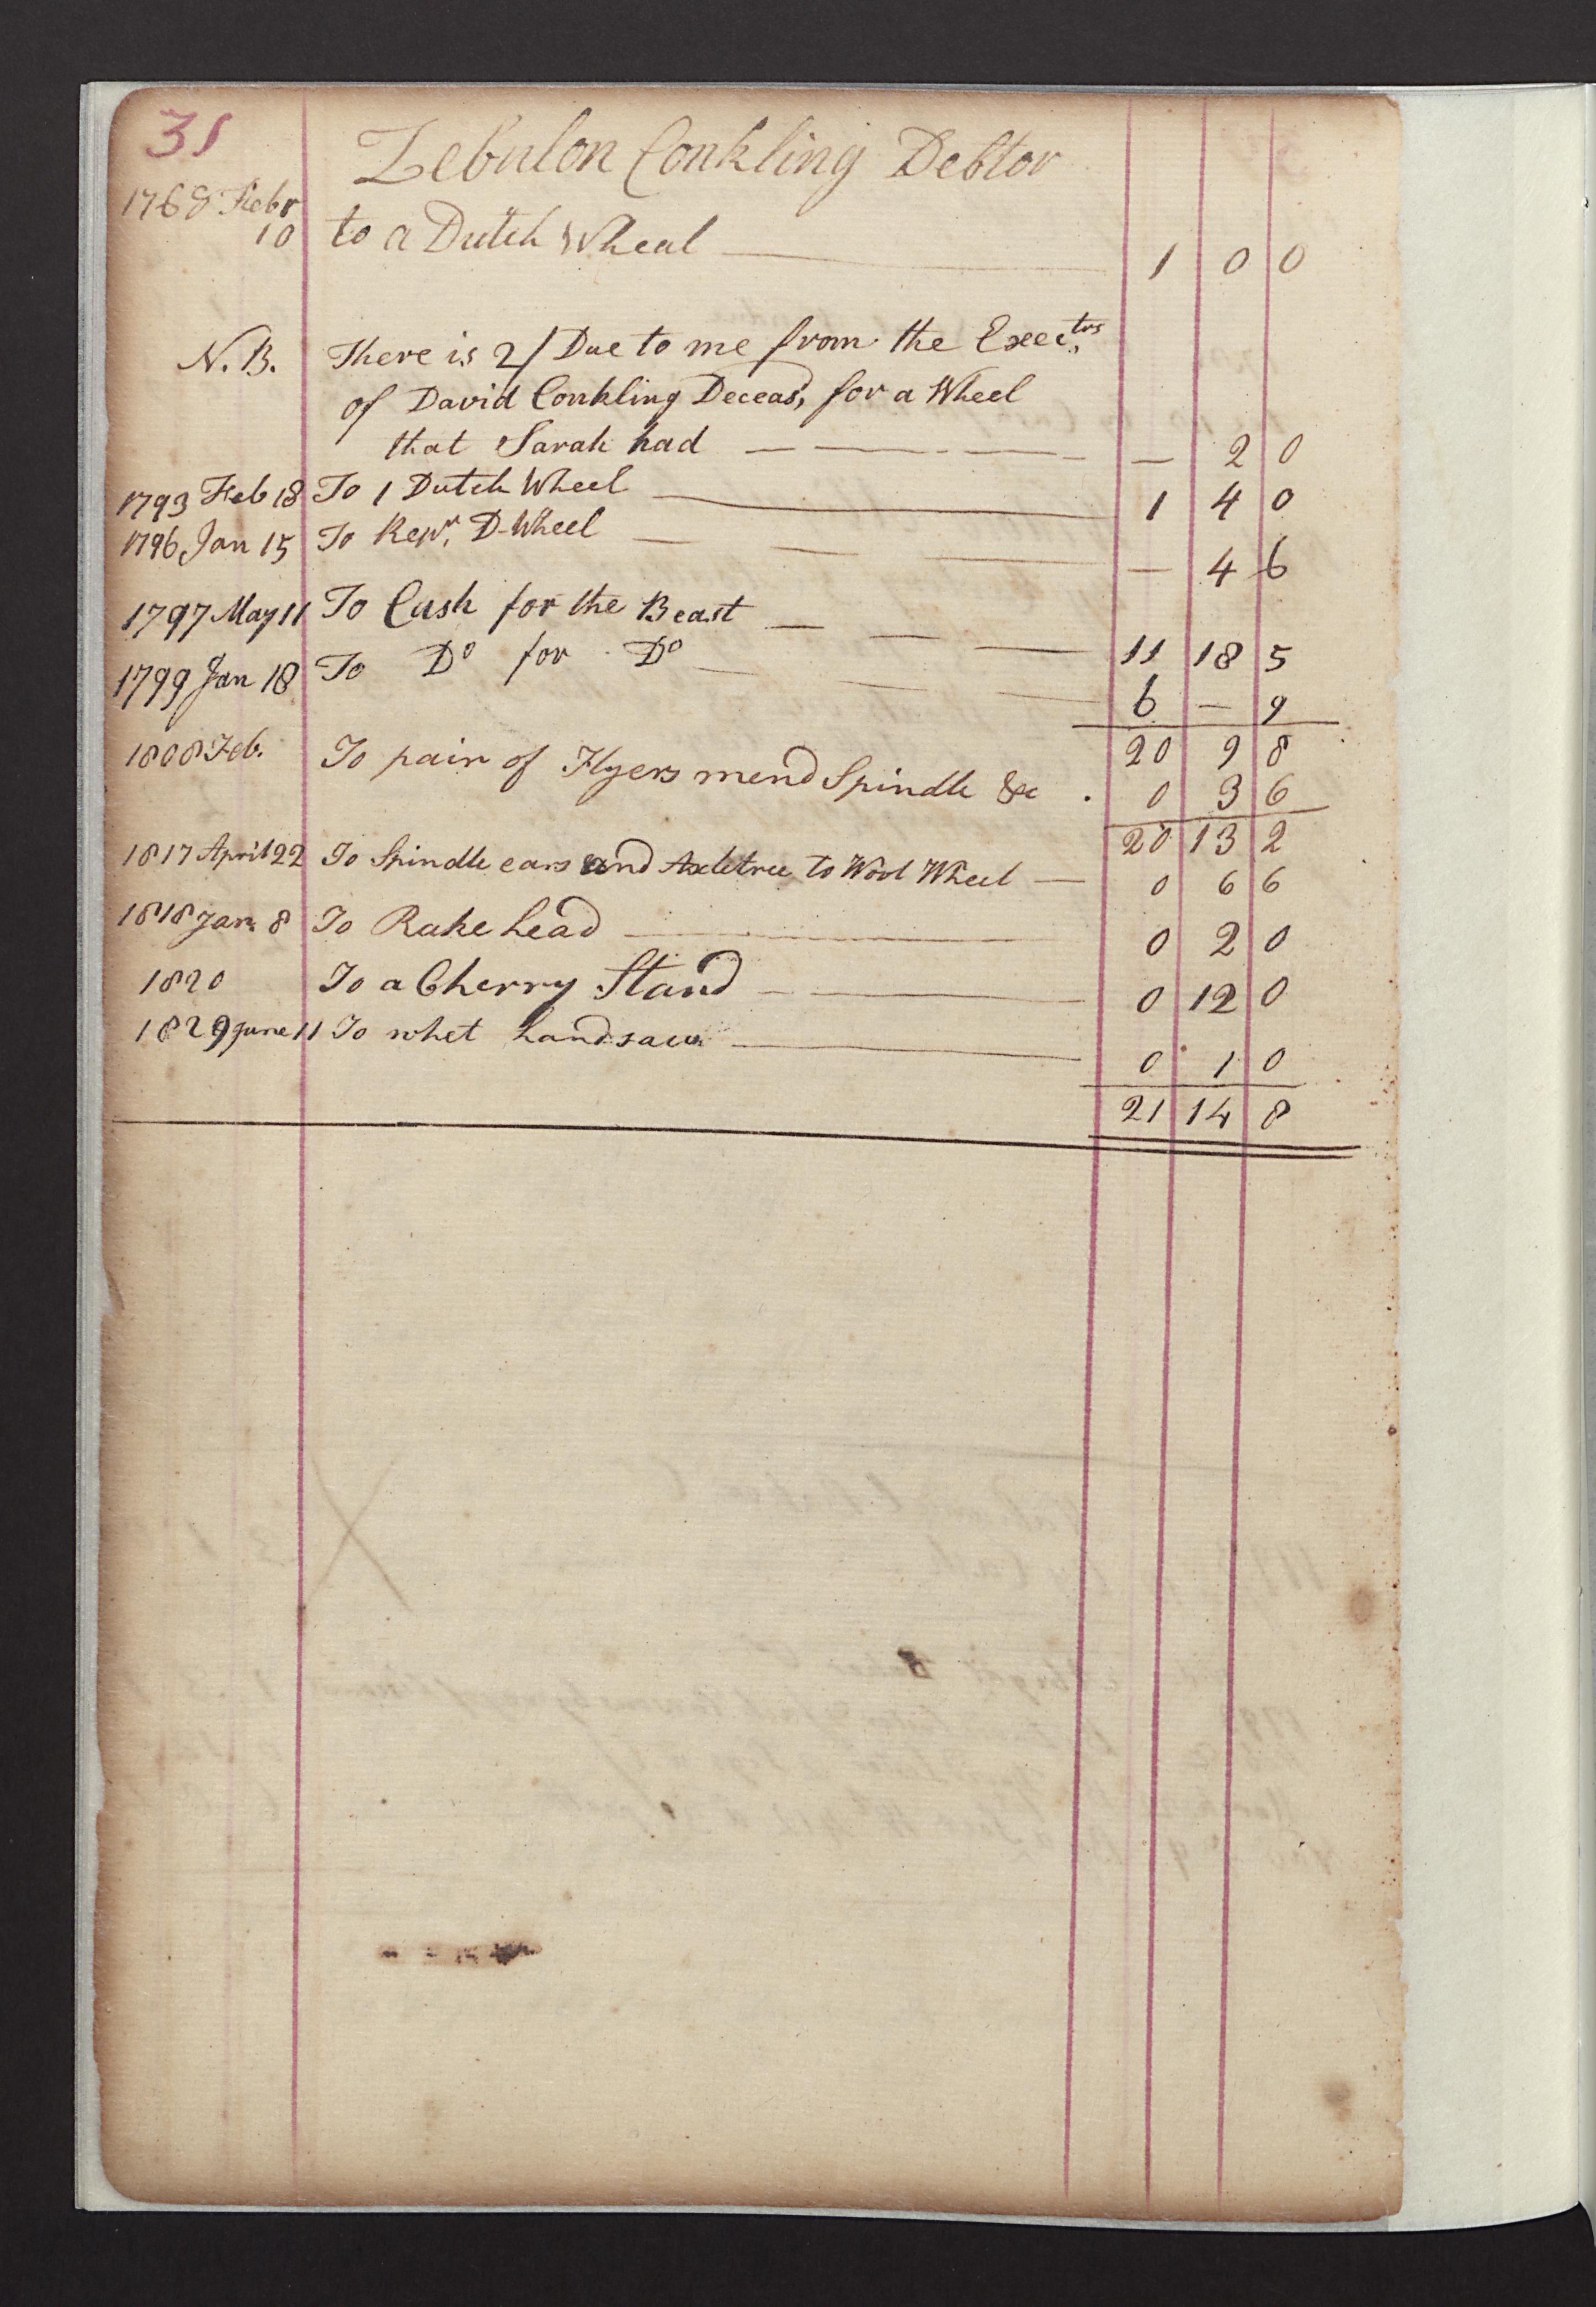 31
Zebulon Conkling Debtor
1768 Febr
10 to a Dutch Wheal 1 0 0
N.B. There is 2/ Due to me from the Exec.trs
of David Conkling Deceas'd, for a Wheel
that Sarah had — 2 0
1793 Feb 18 To 1 Dutch Wheel 1 4 0
1796 Jan 15 To Repr. D-Wheel — 4 6
1797 May 11 To Cash for the Beast 11 18 5
1799 Jan 18 To Do for Do 6 — 9
20 9 8
1808 Feb. To pair of Flyers mend Spindle &c. 0 3 6
20 13 2
1817 April 22 To Spindle ears and Axletree to Wool Wheel — 0 6 6
1818 Jan. 8 To Rake head 0 2 0
1820 To a Cherry Stand 0 12 0
1829 June 11 To whet handsaw 0 1 0
21 14 8